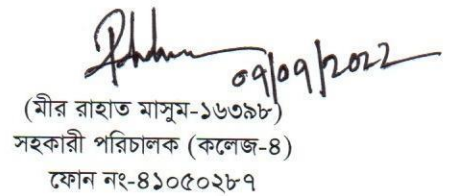 09/09/2022
(মীর রাহাত মাসুম-১৬৩৯৮)
সহকারী পরিচালক (কলেজ-৪)
ফোন নং-৪১০৫০২৮৭